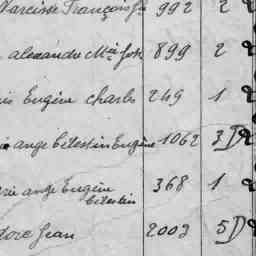 Narcisse François 992 2
alexandre Mie Jos 899 2
Eugène Charles 249 1
ange Célestin Eugène 1062 3 D
ange Eugène 368 1
Célestin
Jean 2003 5 D